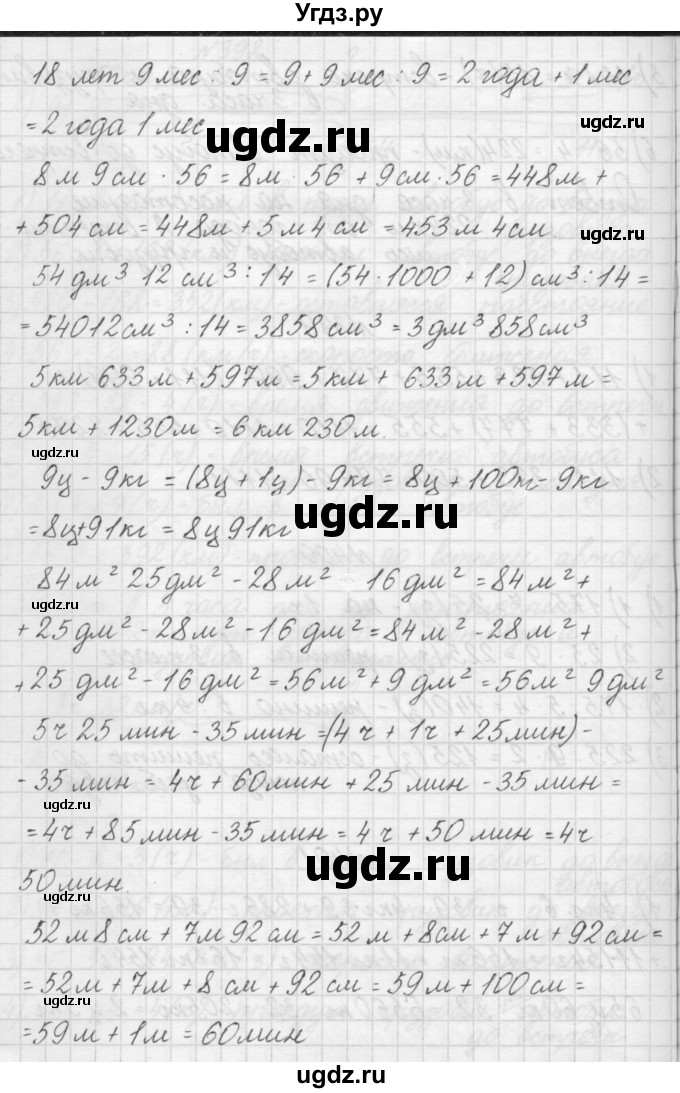 Угдз.ру
18 лет 9 мес : 9 = 9 + 9 мес : 9 = 2 года + 1 мес
= 2 года 1 мес
ugdz.ru
8 м 9 см · 56 = 8 м · 56 + 9 см · 56 = 448 м +
+ 504 см = 448 м + 5 м 4 см = 453 м 4 см.
ugdz.ru
54 дм³ 12 см³ : 14 = (54 · 1000 + 12) см³ : 14 =
= 54012 см³ : 14 = 3858 см³ = 3 дм³ 858 см³
5 км 633 м + 597 м = 5 км + 633 м + 597 м =
5 км + 1230 м = 6 км 230 м.
ugdz.ru
9 ц - 9 кг = (8 ц + 1 ц) - 9 кг = 8 ц + 100 кг - 9 кг
ugdz.ru
= 8 ц + 91 кг = 8 ц 91 кг
84 м² 25 дм² - 28 м² 16 дм² = 84 м² +
ugdz.ru
+ 25 дм² - 28 м² - 16 дм² = 84 м² - 28 м² +
+ 25 дм² - 16 дм² = 56 м² + 9 дм² = 56 м² 9 дм²
5 ч 25 мин - 35 мин = (4 ч + 1 ч + 25 мин) -
- 35 мин = 4 ч + 60 мин + 25 мин - 35 мин =
ugdz.ru
= 4 ч + 85 мин - 35 мин = 4 ч + 50 мин = 4 ч
ugdz.ru
50 мин.
ugdz.ru
52 м 8 см + 7 м 92 см = 52 м + 8 см + 7 м + 92 см =
= 52 м + 7 м + 8 см + 92 см = 59 м + 100 см =
ugdz.ru
= 59 м + 1 м = 60 мин
ugdz.ru